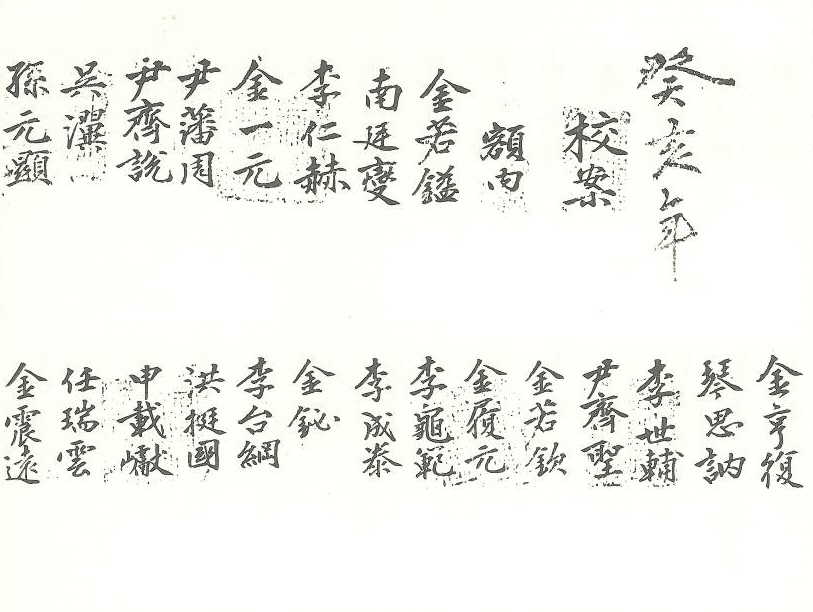 癸亥年
校案
額內
金若鎰
南廷燮
李仁赫
金一元
尹藩周
尹齊說
吳
孫元顯
金亨復
琴思訥
李世輔
尹齊聖
金若欽
金履元
李龜範
李成泰
金鉍
李台綱
洪挺國
申載巘
任瑞雲
金震遠